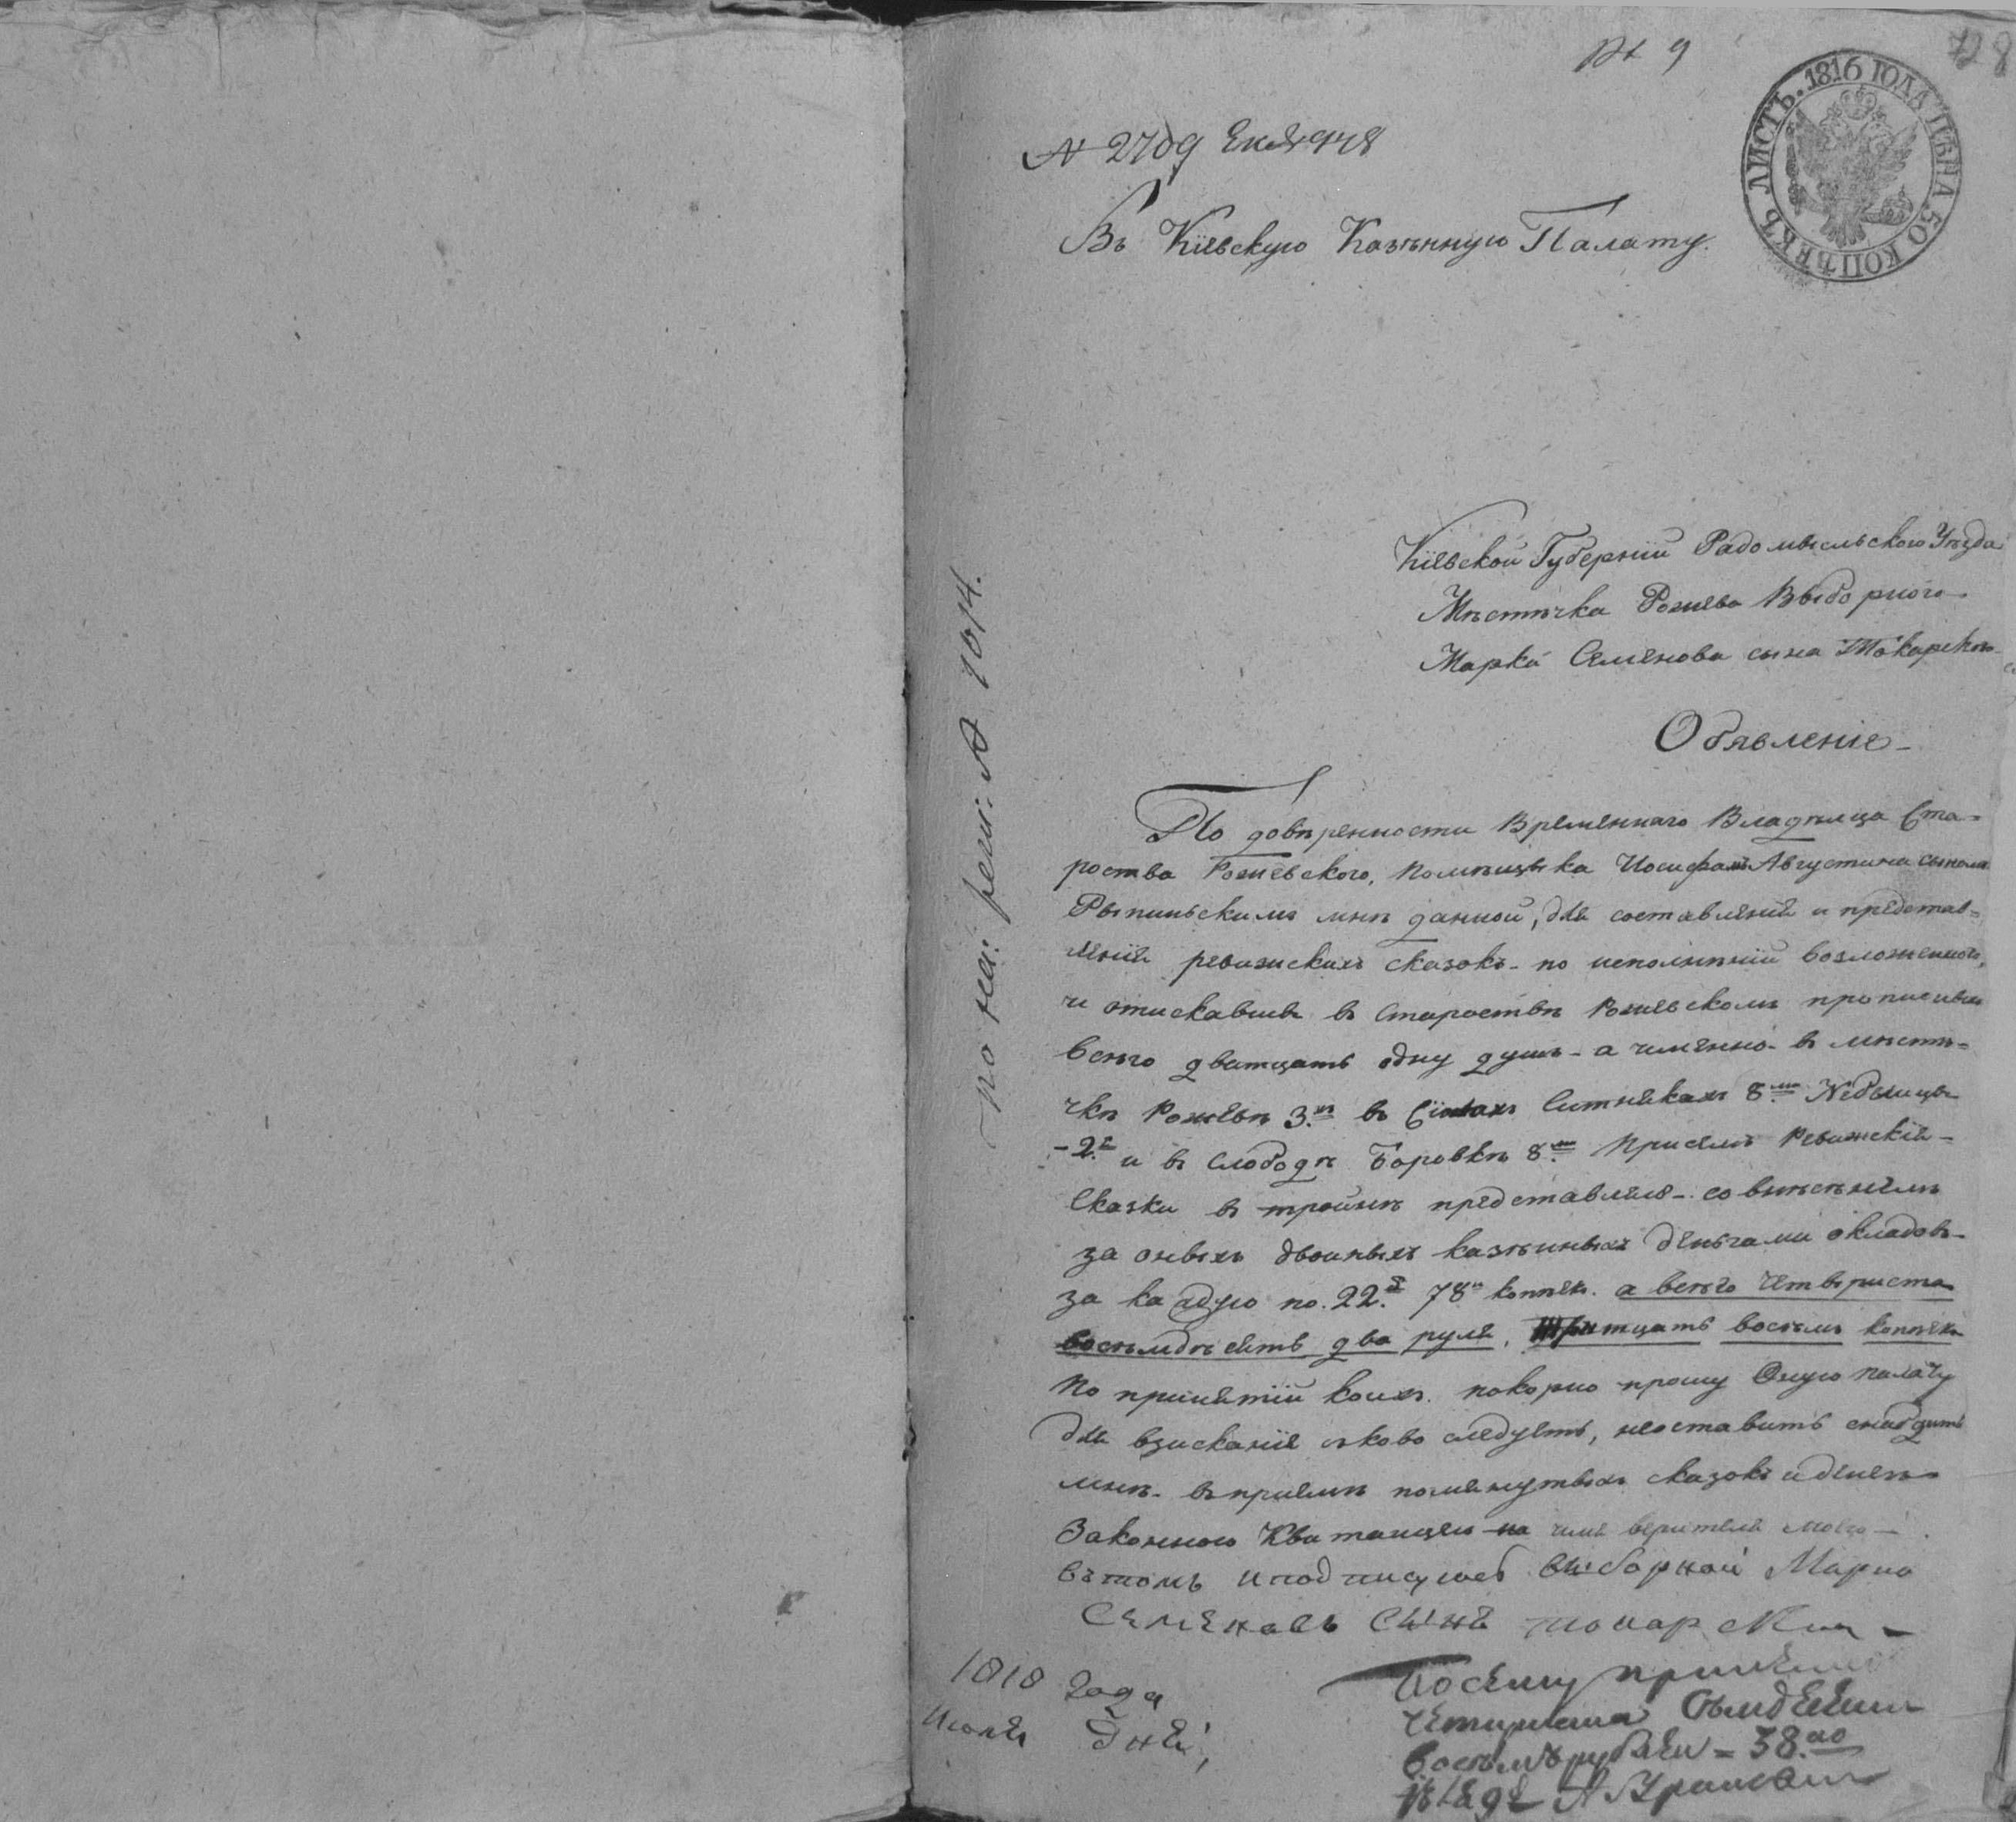 9
ЛИСТЪ. 1816 ГОДА ЦѢНА 50 КОПѢЕКЪ
№ 2709
Въ Кіевскую Казенную Палату.
Кіевской Губерніи Радомысльского Уезда
Местечка Рожева Выборного
Марка Семенова сына Токарского
Объявленіе
По доверенности Временнаго Владельца Ста=
роства Рожевского, помещика Иосифа Августина сыном
мне данной, для составленія и представ=
леніи ревижских сказокъ по исполненіи возложенного,
и отискавшы в Старостве Рожевском прописных
всего дватцать одну душъ - а имянно в месте=
чке Рожеве 3. в Ситняках 8. Небелице
-2. и в Слободе Боровке 8. При сем Ревижскіе
сказки в тройне представляя - со внесением
за оных двойных казенных деньгами окладов
за каждую по 22. 78 копеек. а всего четыриста
восемдесят два рубля, тритцать восемь копеек
По принятіи коих покорно прошу Оную палату
для взысканія с ково следует, не оставить снабдить
мне в прием помянутых сказок и денег
Законною Квитанцею на имя верителя моего
в том и подписуюсь выборной Марко
Семеновъ Сынъ Токарский
1818 года
Июня Дня,
По сему принято
рублей = 38